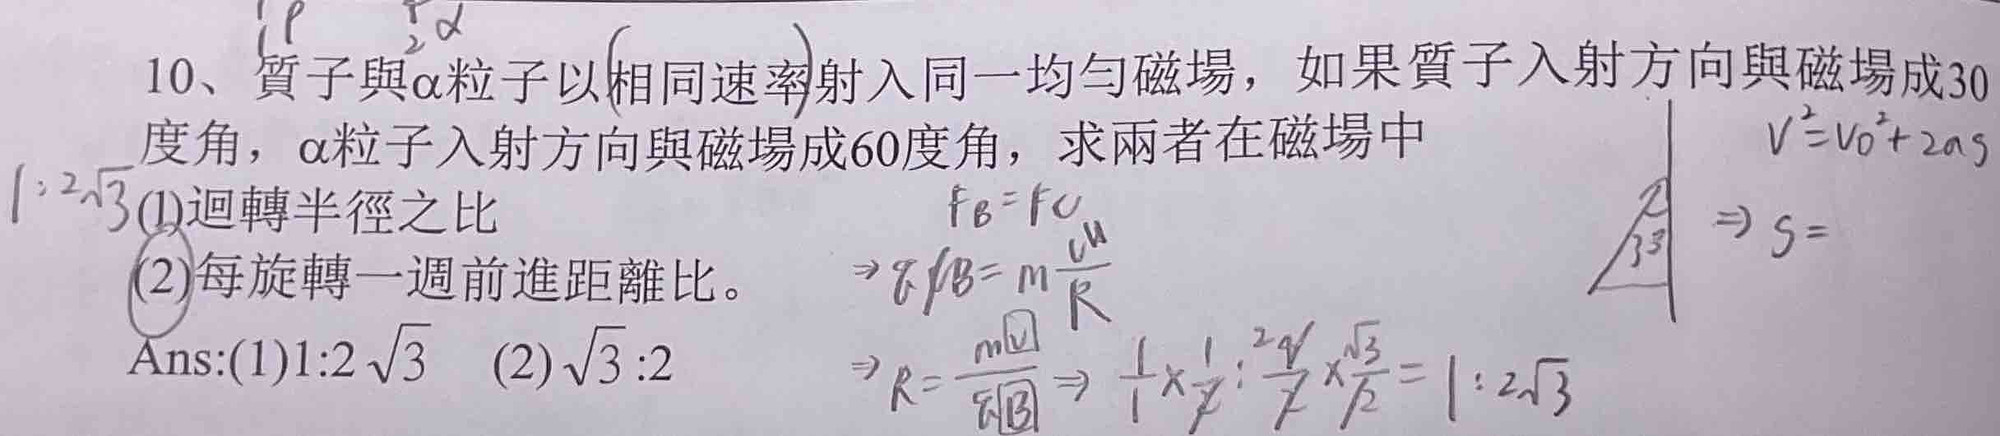 1
1 P
4
2 α
10、質子與α粒子以(相同速率)射入同一均勻磁場，如果質子入射方向與磁場成30
度角，α粒子入射方向與磁場成60度角，求兩者在磁場中
V²=V0²+2as
1:2√3 (1)迴轉半徑之比
FB=FC
⇒ S=
(2)每旋轉一週前進距離比。
⇒ qvB=m v²/R
Ans:(1)1:2√3 (2)√3:2
⇒ R=mv/qB ⇒ 1/1×1/2:4/2×√3/2=1:2√3